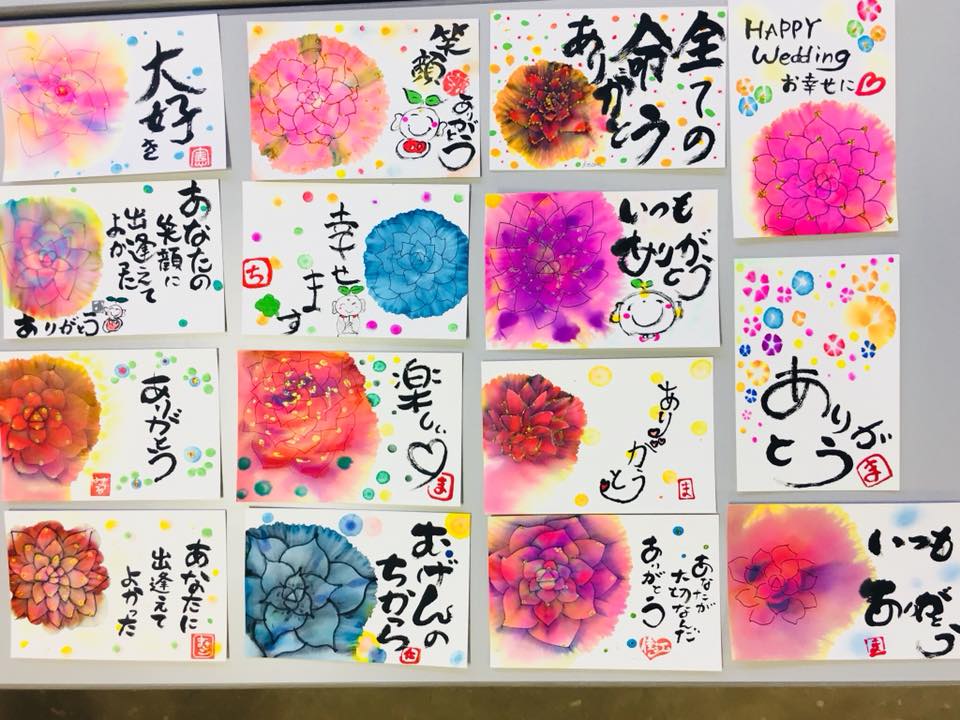 大好き
笑顔
ありがとう
全ての
命
ありがとう
HAPPY
Wedding
お幸せに
あなたの
笑顔に
出逢えて
よかった
ありがとう
幸せます
ち
いつも
ありがとう
ありがとう
ありがとう
楽しい
ま
ありがとう
ま
あなたに
出逢えて
よかった
むげんの
ちから
あなたが
大切なんだ
ありがとう
いつも
ありがとう